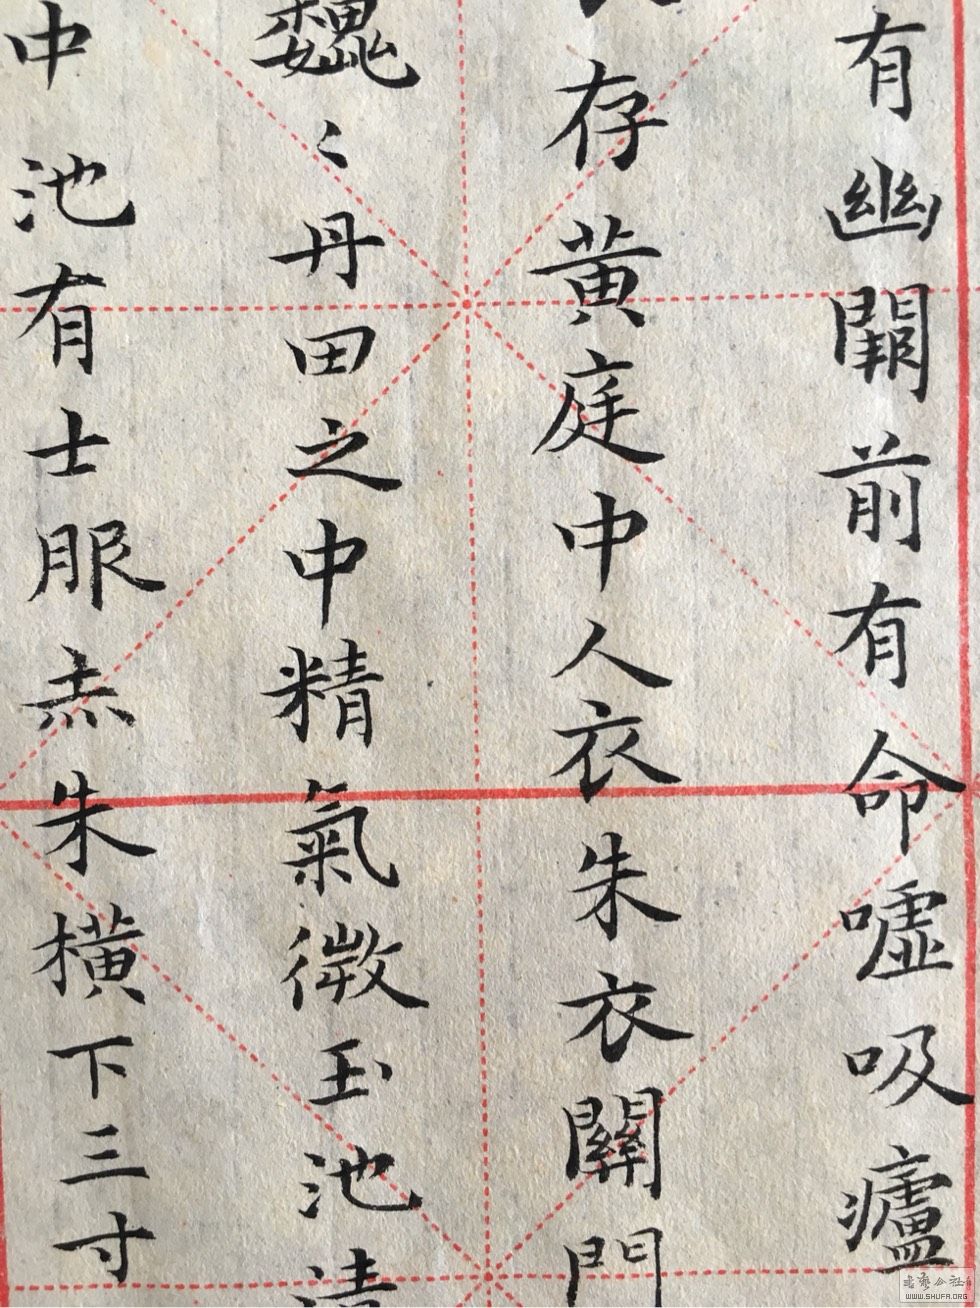 有幽闕前有命噓吸廬
存黄庭中人衣朱衣關門
巍〻丹田之中精氣微玉池清
中池有士服赤朱橫下三寸
書藝公社
WWW.SHUFA.ORG